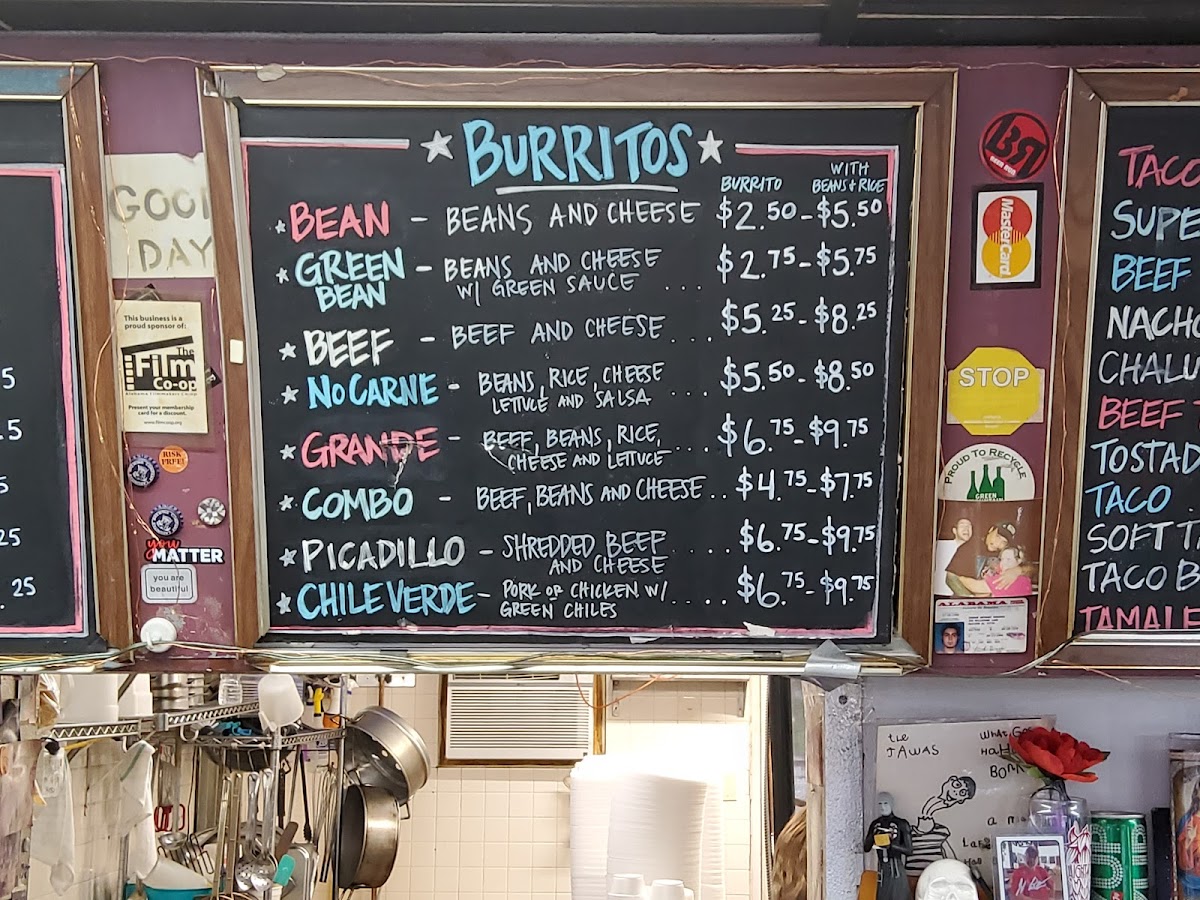 ★ BURRITOS ★
BURRITO
WITH
BEANS & RICE
★ BEAN - BEANS AND CHEESE $2.50-$5.50
★ GREEN BEAN - BEANS AND CHEESE
W/ GREEN SAUCE ... $2.75-$5.75
★ BEEF - BEEF AND CHEESE ... $5.25-$8.25
★ NO CARNE - BEANS, RICE, CHEESE
LETTUCE AND SALSA ... $5.50-$8.50
★ GRANDE - BEEF, BEANS, RICE,
CHEESE AND LETTUCE .... $6.75-$9.75
★ COMBO - BEEF, BEANS AND CHEESE .. $4.75-$7.75
★ PICADILLO - SHREDDED BEEF
AND CHEESE .... $6.75-$9.75
★ CHILE VERDE - PORK OR CHICKEN W/
GREEN CHILES .... $6.75-$9.75
5
.5
5
25
.25
GOO
DAY
This business is a
proud sponsor of:
The
Film
Co-op
Alabama Filmmakers Co-op
Present your membership
card for a discount.
www.filmcoop.org
RISK
FREE!
you
MATTER
you are
beautiful
BR
MasterCard
STOP
PROUD TO RECYCLE
GREEN
ALABAMA
TACO
SUPE
BEEF
NACHO
CHALU
BEEF
TOSTAD
TACO
SOFT TA
TACO B
TAMALE
the
JAWAS
what Go
Ha
BOR
a m